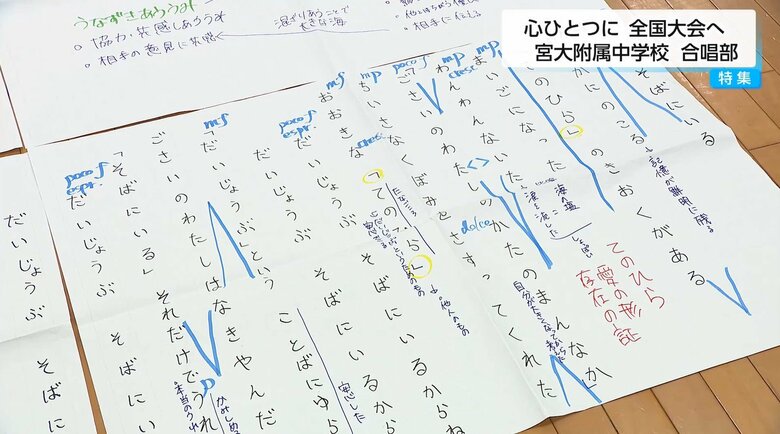 心ひとつに 全国大会へ
宮大附属中学校 合唱部
特集
うなずきあろううみ
協力・共感しあろうみ
相手の意見に共感
混ざりあうことで
大きな海
そばにいる
かにのこる
のきおくがある
記憶が鮮明に残る
のひら」
まいごになった
海へ塩
涙を流した
しょっぱい
てのひら
愛の形
存在の証
わんわんないた
わたしのかたのまんなか
ごさいのわ
ちいさなくぼみをさすってくれた
おおきな「てのひら」
他人のもの
だいじょうぶ そばにいるからね
だいじょうぶ そばにいるから
安心した
「だいじょうぶ」という
ことばにゆら
ごさいのわたしはなきやんだ
「そばにいる」 それだけでうれ
だいじょうぶ そばに
だいじょうぶ そばに
mp
cresc.
poco f
mp
mf
cresc.
poco f
espr.
mf
poco f
espr.
dolce
p